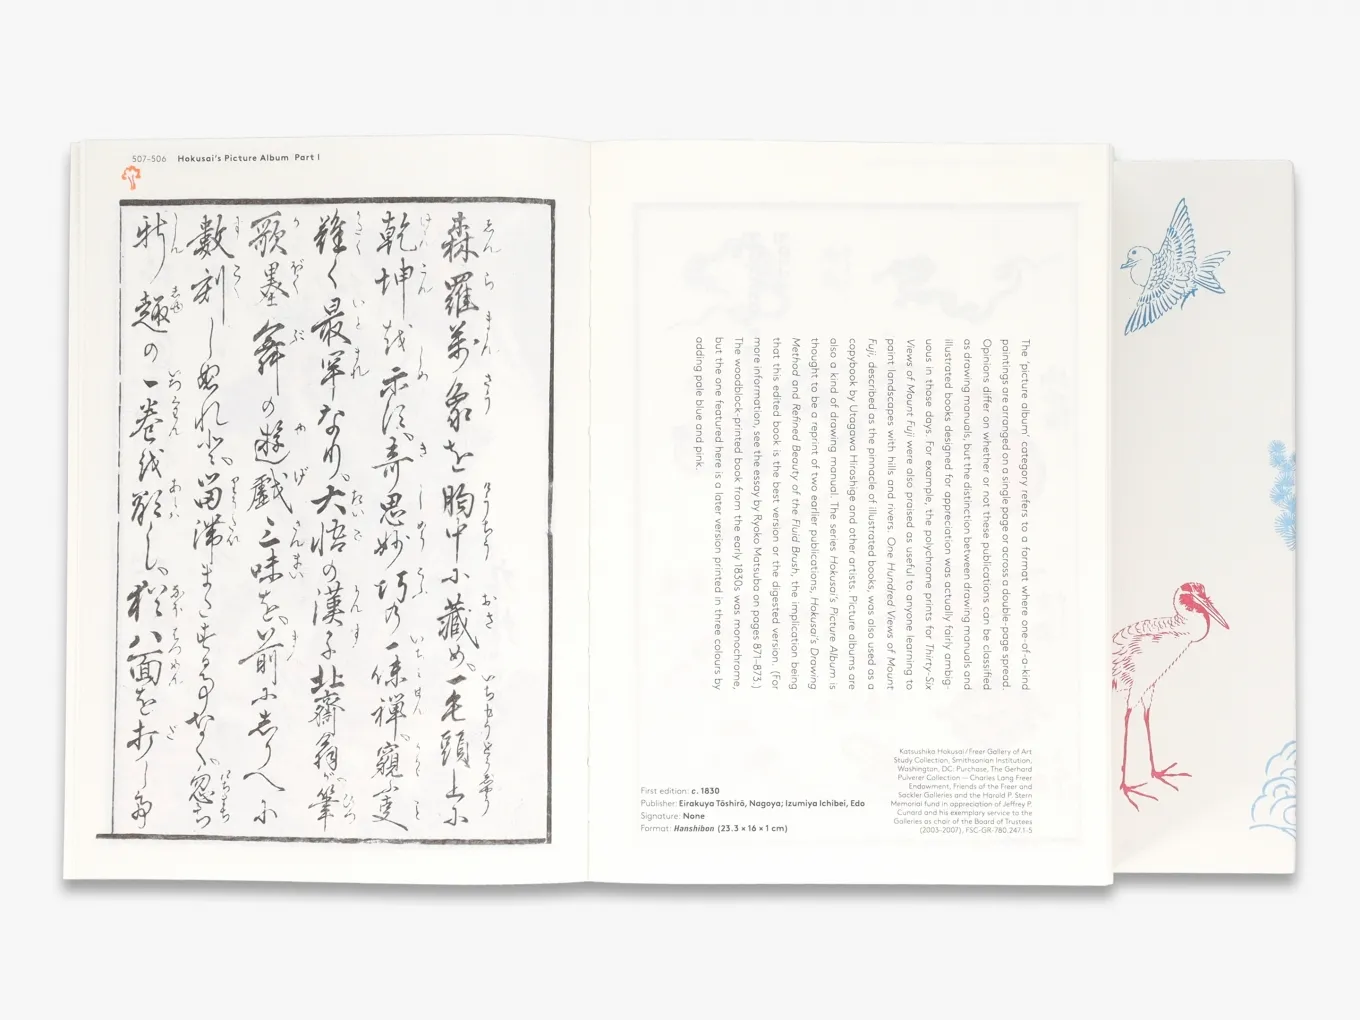 507–506 Hokusai's Picture Album Part I
森羅万象を胸中に蔵め、一毛頭上に
乾坤を示す、奇思妙巧乃一味禅窺
難く最罕なり、大悟の漢子北斎翁、筆
歌墨舞の遊戯三味を、前にしりへに
数刻し 留滞また なく、忽ち
新趣の一巻を 、猶八面を打し
The 'picture album' category refers to a format where one-of-a-kind
paintings are arranged on a single page or across a double-page spread.
Opinions differ on whether or not these publications can be classified
as drawing manuals, but the distinction between drawing manuals and
illustrated books designed for appreciation was actually fairly ambig-
uous in those days. For example, the polychrome prints for Thirty-Six
Views of Mount Fuji were also praised as useful to anyone learning to
paint landscapes with hills and rivers. One Hundred Views of Mount
Fuji, described as the pinnacle of illustrated books, was also used as a
copybook by Utagawa Hiroshige and other artists. Picture albums are
also a kind of drawing manual. The series Hokusai's Picture Album is
thought to be a reprint of two earlier publications, Hokusai's Drawing
Method and Refined Beauty of the Fluid Brush, the implication being
that this edited book is the best version or the digested version. (For
more information, see the essay by Ryoko Matsuba on pages 871–873.)
The woodblock-printed book from the early 1830s was monochrome,
but the one featured here is a later version printed in three colours by
adding pale blue and pink.
First edition: c. 1830
Publisher: Eirakuya Tōshirō, Nagoya; Izumiya Ichibei, Edo
Signature: None
Format: Hanshibon (23.3 × 16 × 1 cm)
Katsushika Hokusai/Freer Gallery of Art
Study Collection, Smithsonian Institution,
Washington, DC: Purchase, The Gerhard
Pulverer Collection — Charles Lang Freer
Endowment, Friends of the Freer and
Sackler Galleries and the Harold P. Stern
Memorial fund in appreciation of Jeffrey P.
Cunard and his exemplary service to the
Galleries as chair of the Board of Trustees
(2003–2007), FSC-GR-780.247.1-5